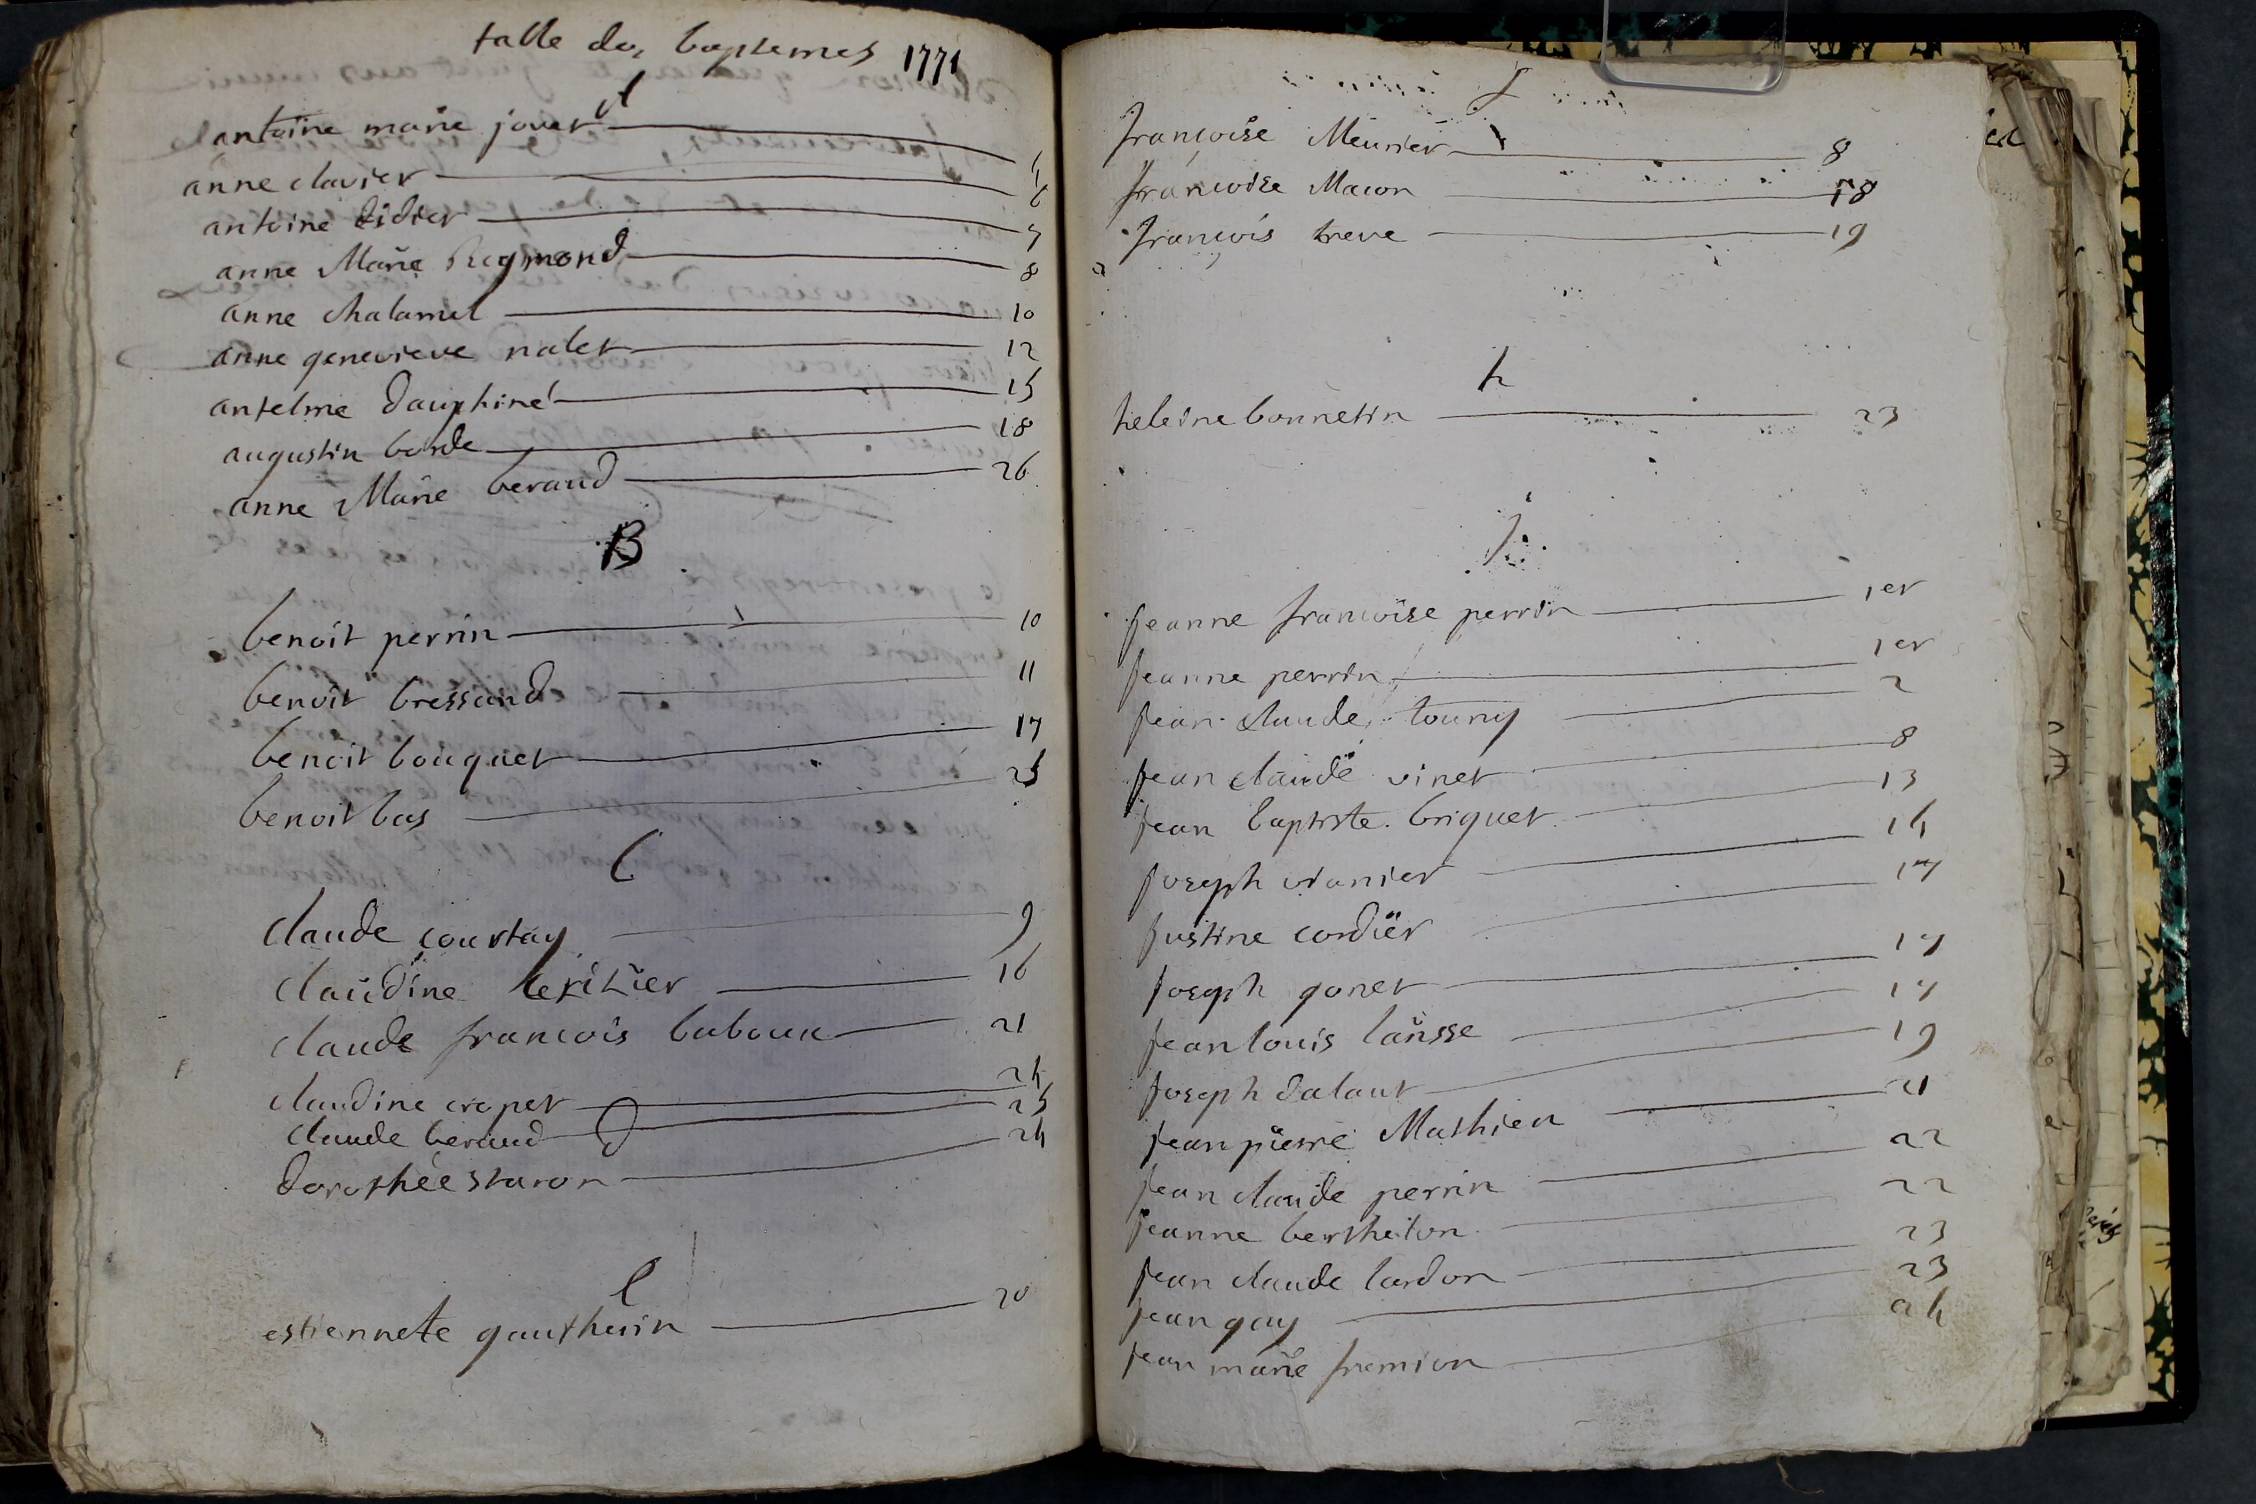 table des baptemes 1771
A
antoine marie jouet 4
anne clavier 6
antoine didier 7
anne Marie Reymond 8
anne chalamel 10
anne genevieve nalet 12
antelme dauphiné 15
augustin borde 18
anne Marie beraud 26
B
benoit perrin 10
benoit bressand 11
benoit bouquet 17
benoit bas 25
C
claude courtay 9
claudine 16
claude francois buboux 21
claudine crepet 24
claude beraud 25
D
dorothée staron 24
E
estiennete gautherin 20
f
françoise Meunier 8
francoise Macon 18
françois treve 19
h
heleine bonnetin 23
j
jeanne francoise perrin 1er
jeanne perrin 1er
jean claude touny 2
jean claude vinet 8
jean baptiste briquet 13
joseph vianier 14
justine cordier 17
joseph gonet 17
jean louis lausse 17
joseph dalaut 19
jean pierre Mathieu 21
jean claude perrin 22
jeanne bertheton 22
jean claude lardon 23
jean gay 23
jean marie fremion 24